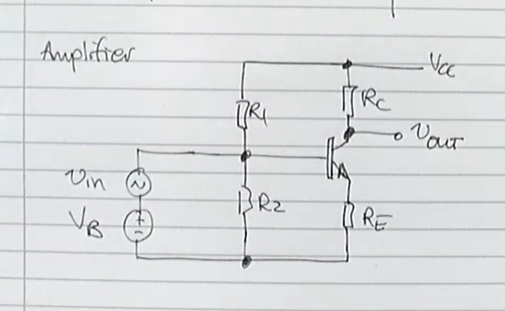 Amplifier
VCC
R1
RC
vOUT
vin
R2
VB
RE